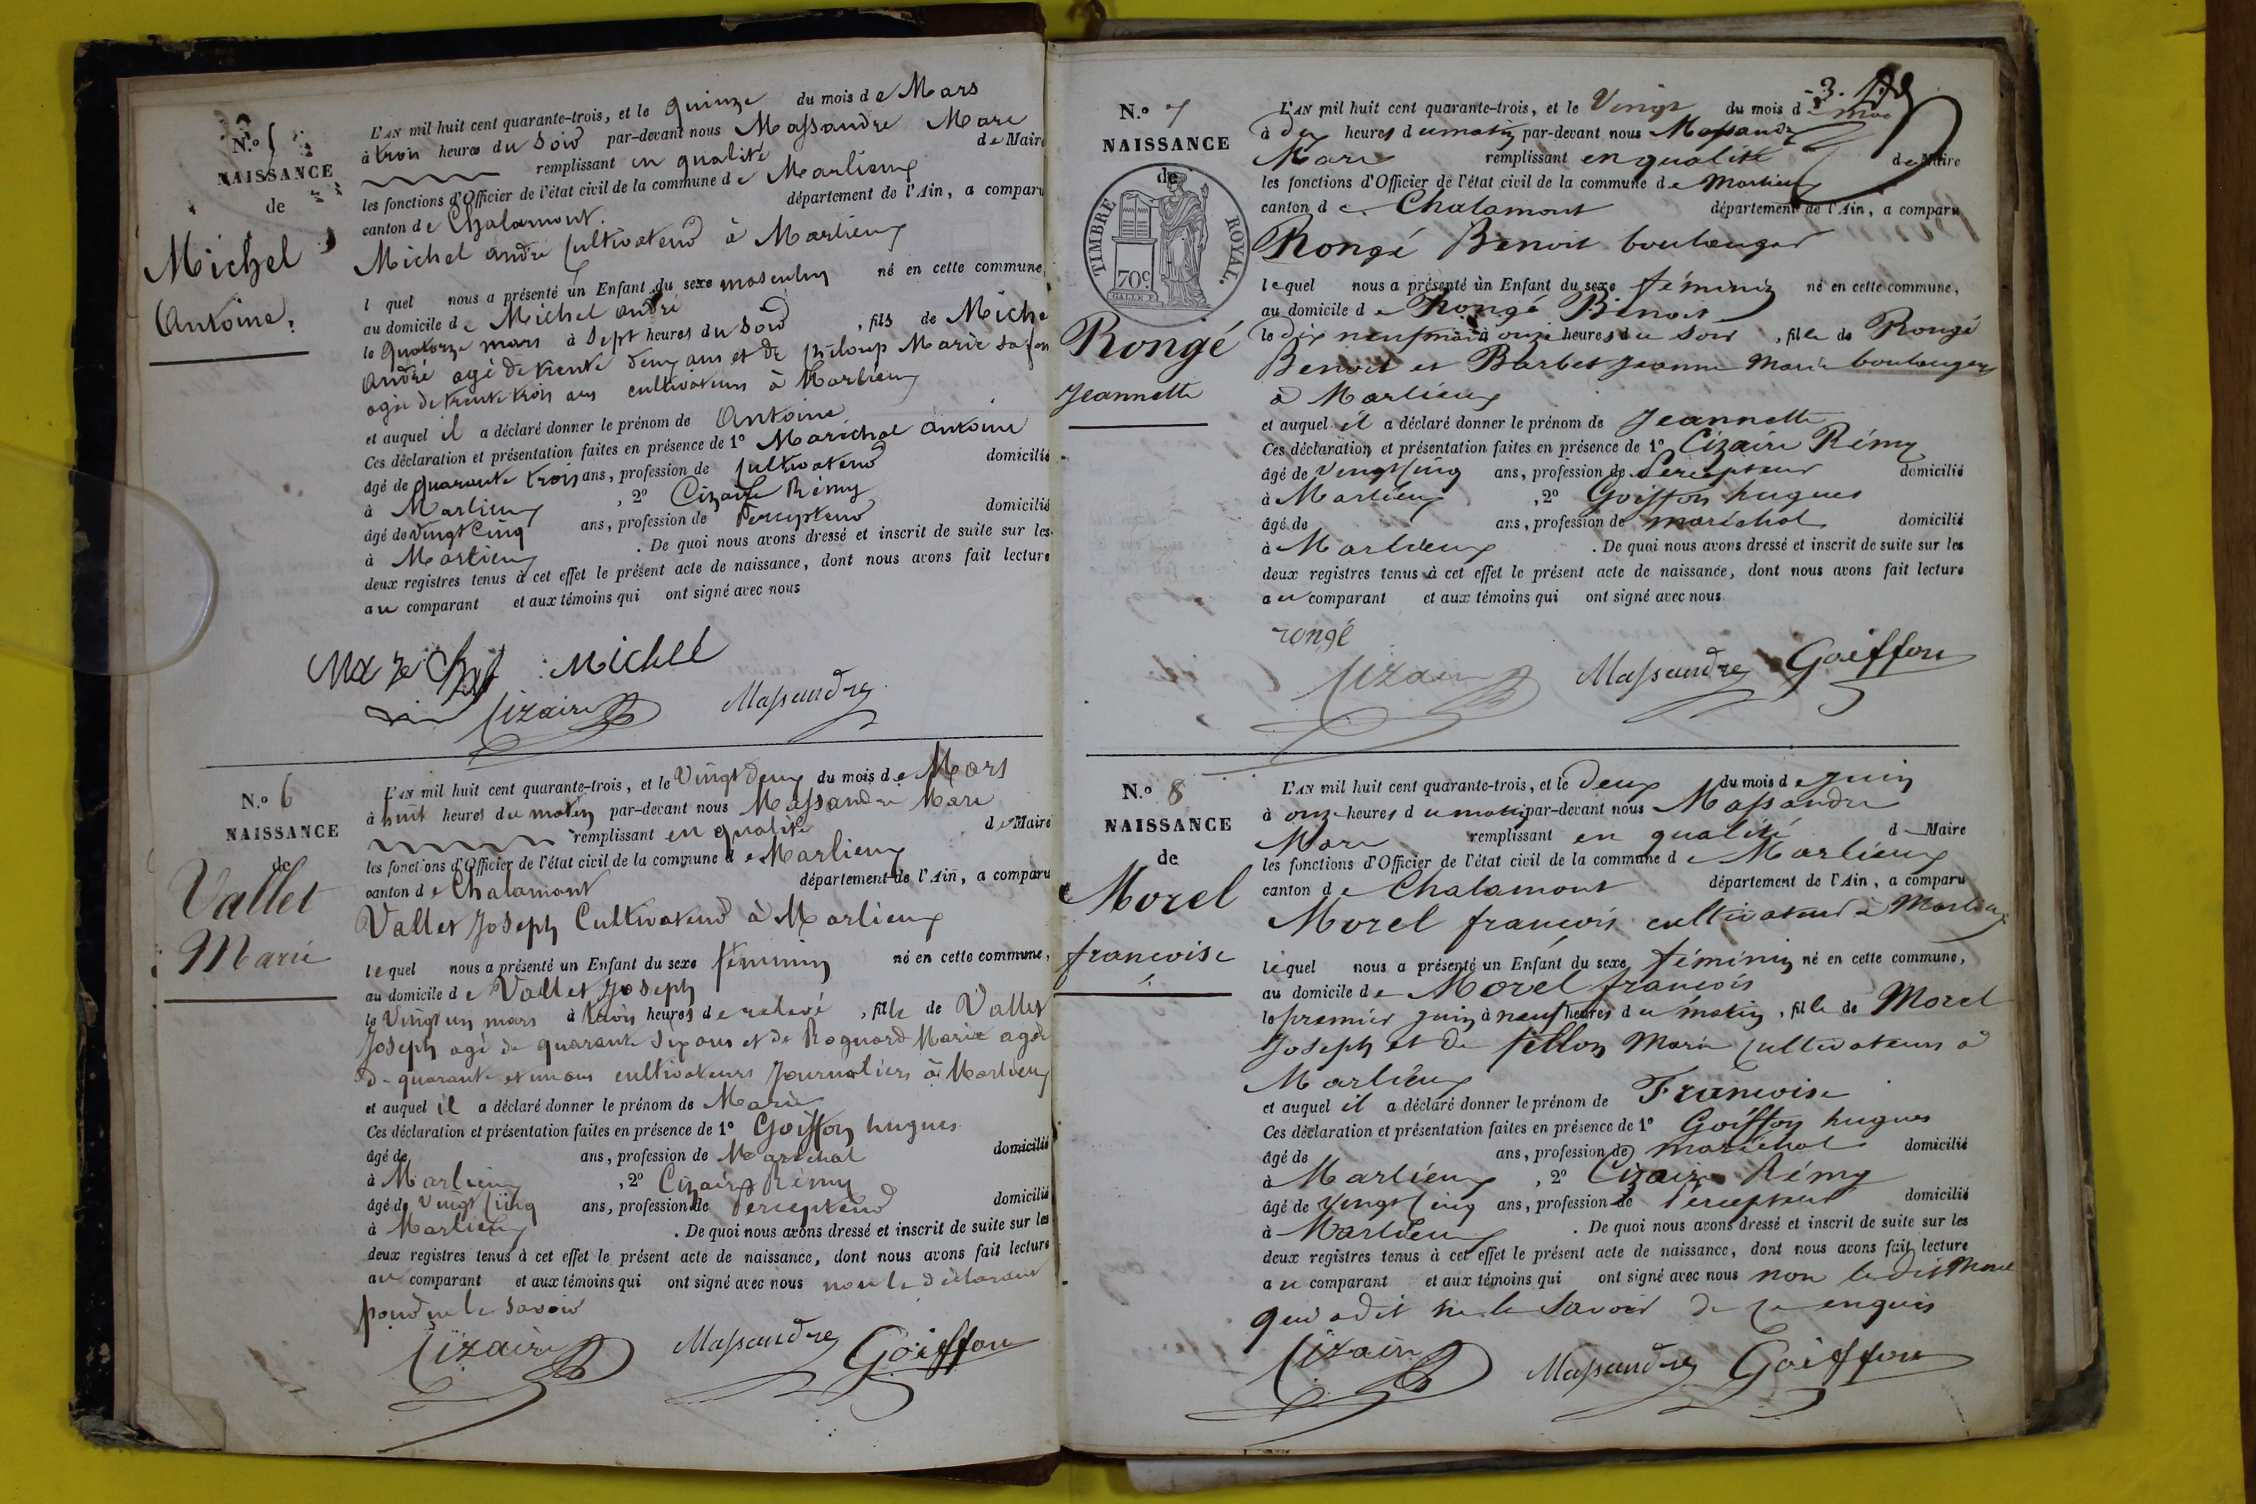 N.o 5
NAISSANCE
de
Michel
Antoine.
L'AN mil huit cent quarante-trois, et le quinze du mois de Mars
à trois heures du soir par-devant nous Massandre Marc
remplissant en qualité de Maire
les fonctions d'Officier de l'état civil de la commune de Marlieux
canton de Chalamont. département de l'Ain, a comparu
Michel andré Cultivateur à Marlieux
l quel nous a présenté un Enfant du sexe masculin né en cette commune,
au domicile de Michel andré
le quatorze mars à sept heures du soir, fils de Michel
andré agé de trente deux ans et de Marie sa fem
agée de trente trois ans cultivateurs à Marlieux
et auquel il a déclaré donner le prénom de Antoine
Ces déclaration et présentation faites en présence de 1o Maréchal antoine
âgé de quarante trois ans, profession de Cultivateur domicilié
à Marlieux, 2o Cizaire Rémy
âgé de vingt cinq ans, profession de Percepteur domicilié
à Marlieux. De quoi nous avons dressé et inscrit de suite sur les
deux registres tenus à cet effet le présent acte de naissance, dont nous avons fait lecture
au comparant et aux témoins qui ont signé avec nous
Michel
Cizaire Massandre
N.o 6
NAISSANCE
de
Vallet
Marie
L'AN mil huit cent quarante-trois, et le Vingt deux du mois de Mars
à huit heures du matin par-devant nous Massandre Marc
remplissant en qualité de Maire
les fonctions d'Officier de l'état civil de la commune de Marlieux
canton de Chalamont département de l'Ain, a comparu
Vallet Joseph Cultivateur à Marlieux
lequel nous a présenté un Enfant du sexe féminin né en cette commune,
au domicile de Vallet Joseph
le Vingt un mars à trois heures de relevé, fille de Vallet
Joseph agé de quarante six ans et de Roguard Marie agée
de quarante et un ans cultivateurs Journaliers à Marlieux
et auquel il a déclaré donner le prénom de Marie
Ces déclaration et présentation faites en présence de 1o Goiffon hugues
âgé de ans, profession de Maréchal domicilié
à Marlieux, 2o Cizaire Rémy
âgé de vingt cinq ans, profession de Percepteur domicilié
à Marlieux. De quoi nous avons dressé et inscrit de suite sur les
deux registres tenus à cet effet le présent acte de naissance, dont nous avons fait lecture
au comparant et aux témoins qui ont signé avec nous non le déclarant
pour ne le savoir
Cizaire Massandre Goiffon
N.o 7
NAISSANCE
de
TIMBRE ROYAL.
70c
Rongé
Jeannette
L'AN mil huit cent quarante-trois, et le Vingt du mois de mai
à dix heures du matin par-devant nous Massandre
Marc remplissant en qualité de Maire
les fonctions d'Officier de l'état civil de la commune de Marlieux
canton de Chalamont département de l'Ain, a comparu
Rongé Benoit boulanger
lequel nous a présenté un Enfant du sexe féminin né en cette commune,
au domicile de Rongé Benoit
le dix neuf mai à onze heures du soir, fille de Rongé
Benoit et Barbet Jeanne Marie boulangers
à Marlieux
et auquel il a déclaré donner le prénom de Jeannette
Ces déclaration et présentation faites en présence de 1o Cizaire Rémy
âgé de vingt cinq ans, profession de Percepteur domicilié
à Marlieux, 2o Goiffon hugues
âgé de ans, profession de maréchal domicilié
à Marlieux. De quoi nous avons dressé et inscrit de suite sur les
deux registres tenus à cet effet le présent acte de naissance, dont nous avons fait lecture
au comparant et aux témoins qui ont signé avec nous
rongé
Cizaire Massandre Goiffon
N.o 8
NAISSANCE
de
Morel
francoise
L'AN mil huit cent quarante-trois, et le Deux du mois de juin
à onze heures du matin par-devant nous Massandre
Marc remplissant en qualité d Maire
les fonctions d'Officier de l'état civil de la commune de Marlieux
canton de Chalamont département de l'Ain, a comparu
Morel francois cultivateur à Marlieux
lequel nous a présenté un Enfant du sexe féminin né en cette commune,
au domicile de Morel francois
le premier juin à neuf heures du matin, fille de Morel
Joseph et de fillon Marie Cultivateurs à
Marlieux
et auquel il a déclaré donner le prénom de Francoise
Ces déclaration et présentation faites en présence de 1o Goiffon hugues
âgé de ans, profession de maréchal domicilié
à Marlieux, 2o Cizaire Rémy
âgé de vingt cinq ans, profession de Percepteur domicilié
à Marlieux. De quoi nous avons dressé et inscrit de suite sur les
deux registres tenus à cet effet le présent acte de naissance, dont nous avons fait lecture
au comparant et aux témoins qui ont signé avec nous non ledit Morel
qui a dit ne le savoir de ce enquis
Cizaire Massandre Goiffon